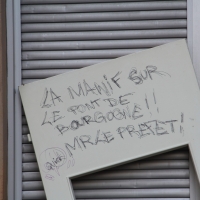 LA MANIF SUR
LE PONT DE
BOURGOGNE!!
MR LE PREFET!